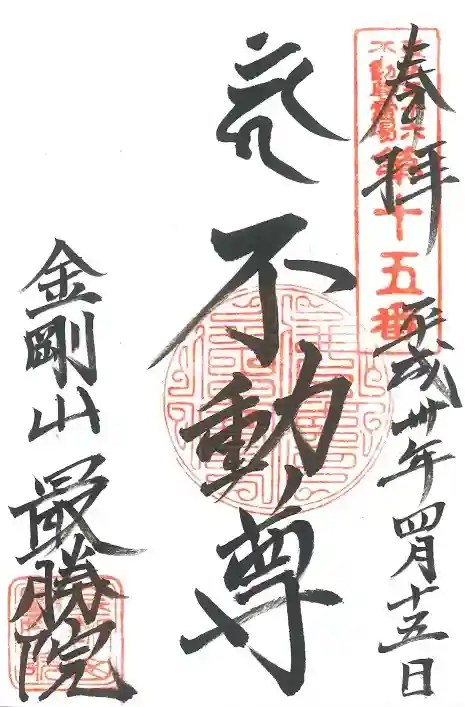 奉拝
東北三十六
不動尊霊場
第十五番
平成卅年四月十五日
不動尊
金剛山
最勝院